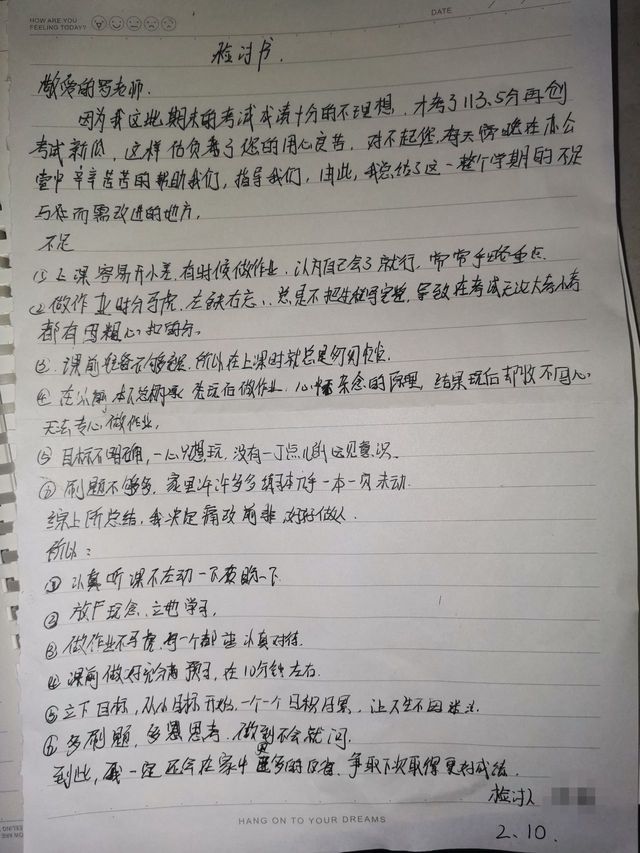 HOW ARE YOU
FEELING TODAY?
DATE
检讨书.
敬爱的罗老师.
因为我这此期末的考试成绩十分的不理想,才考了113.5分再创
考试新低,这样 负 了您的用心良苦,对不起您,每天傍晚在办公
室中辛辛苦苦的帮助我们,指导我们,由此,我总结了这一整个学期的不足
与 而需改进的地方.
不足
①上课容易开小差,有时候做作业,认为自己会了就行,常常 重点.
②做作业时分 虎,左 右忘,总是不把 写完整,导致在考试无论大考小考
都有因粗心扣 分.
③课前准备不够 ,所以在上课时就总是匆匆忙忙.
④在 先玩后做作业,心 杂念的原理,结果玩后却收不回心
无法专心做作业.
⑤目标不明确,一心只想玩,没有一丁点儿的 意识.
⑥刷题不够多,家里许许多多练习本 一本一页未动.
综上所总结,我决定痛改前非,好好做人.
所以:
①认真听课不左动一下右 一下
②放下玩念,立地学习.
③做作业不马虎,每一个都要认真对待.
④课前做好充分 预习,在10分钟左右.
⑤立下目标,从小目标开始,一个一个日积月累,让
⑥多刷题,多 思考,做到不会就问.
到此,我一定还会在家中更多的反省,争取下次取得更好成绩.
检讨人
2.10.
HANG ON TO YOUR DREAMS